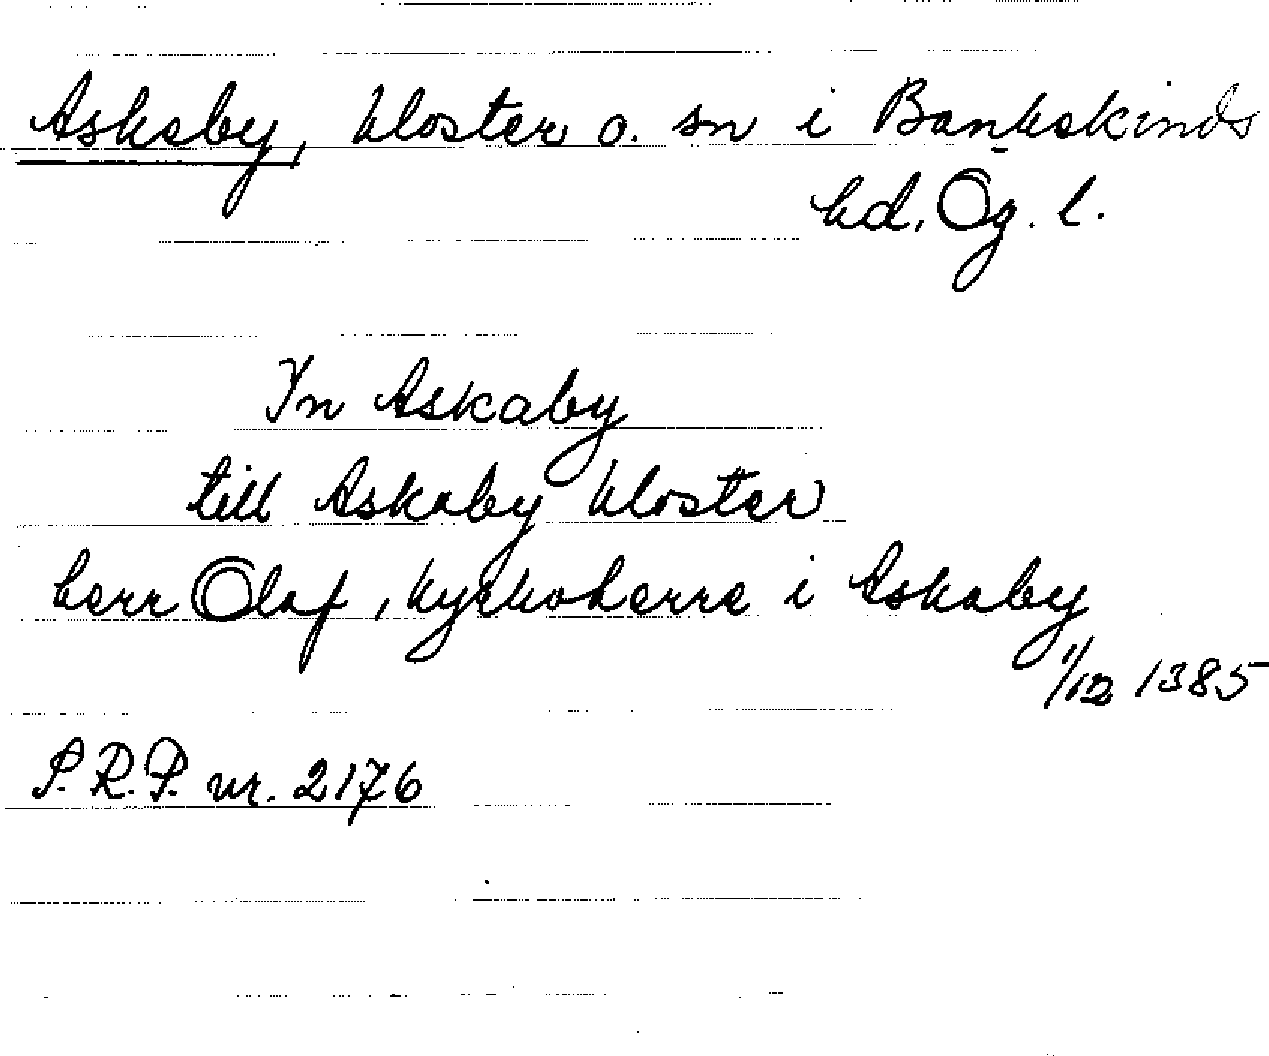 Askaby, kloster o. sn i Bankekinds
hd, Ög. l.
In Askaby
till Askaby kloster
herr Olaf, kyrkoherre i Askaby
1/12 1385
S.R.P. nr. 2176